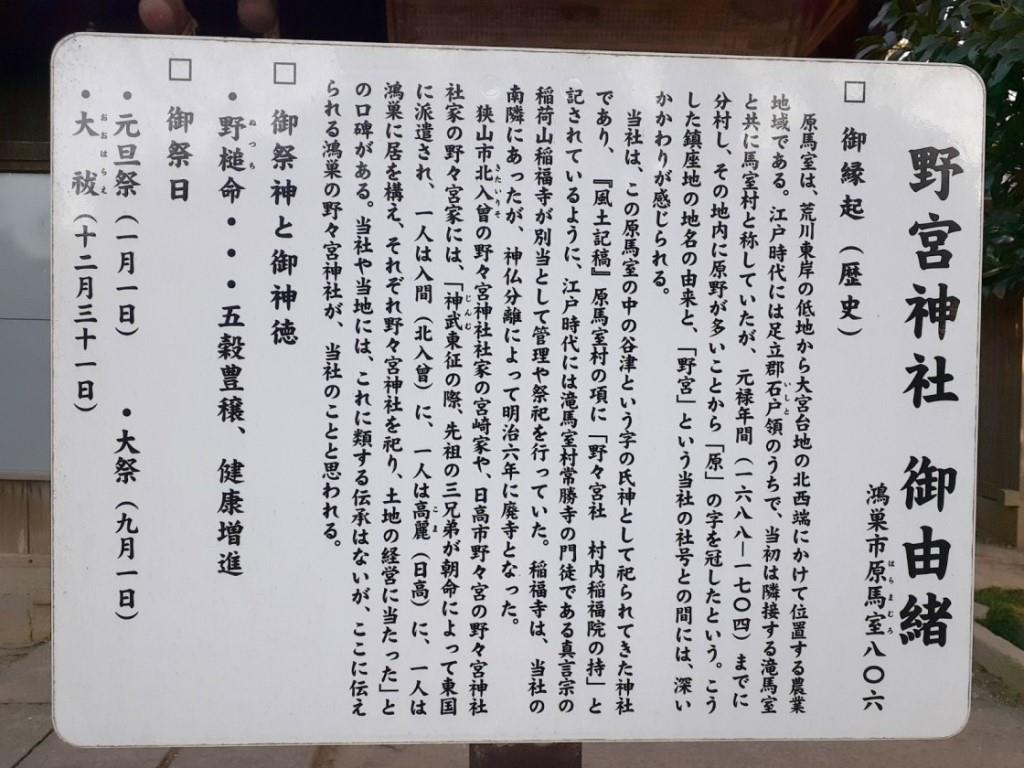 野宮神社 御由緒
鴻巣市原馬室八〇六
はらまむろ
□ 御縁起（歴史）
原馬室は、荒川東岸の低地から大宮台地の北西端にかけて位置する農業
地域である。江戸時代には足立郡石戸領のうちで、当初は隣接する滝馬室
いしと
と共に馬室村と称していたが、元禄年間（一六八八―一七〇四）までに
分村し、その地内に原野が多いことから「原」の字を冠したという。こう
した鎮座地の地名の由来と、「野宮」という当社の社号との間には、深い
かかわりが感じられる。
当社は、この原馬室の中の谷津という字の氏神として祀られてきた神社
であり、『風土記稿』原馬室村の項に「野々宮社 村内稲福院の持」と
記されているように、江戸時代には滝馬室村常勝寺の門徒である真言宗の
稲荷山稲福寺が別当として管理や祭祀を行っていた。稲福寺は、当社の
南隣にあったが、神仏分離によって明治六年に廃寺となった。
狭山市北入曽の野々宮神社社家の宮崎家や、日高市野々宮の野々宮神社
きたいりそ
社家の野々宮家には、「神武東征の際、先祖の三兄弟が朝命によって東国
じんむ
に派遣され、一人は入間（北入曽）に、一人は高麗（日高）に、一人は
こま
鴻巣に居を構え、それぞれ野々宮神社を祀り、土地の経営に当たった」と
の口碑がある。当社や当地には、これに類する伝承はないが、ここに伝え
られる鴻巣の野々宮神社が、当社のことと思われる。
□ 御祭神と御神徳
・野槌命・・・五穀豊穣、健康増進
ぬっち
□ 御祭日
・元旦祭（一月一日） ・大祭（九月一日）
・大祓（十二月三十一日）
おおはらえ